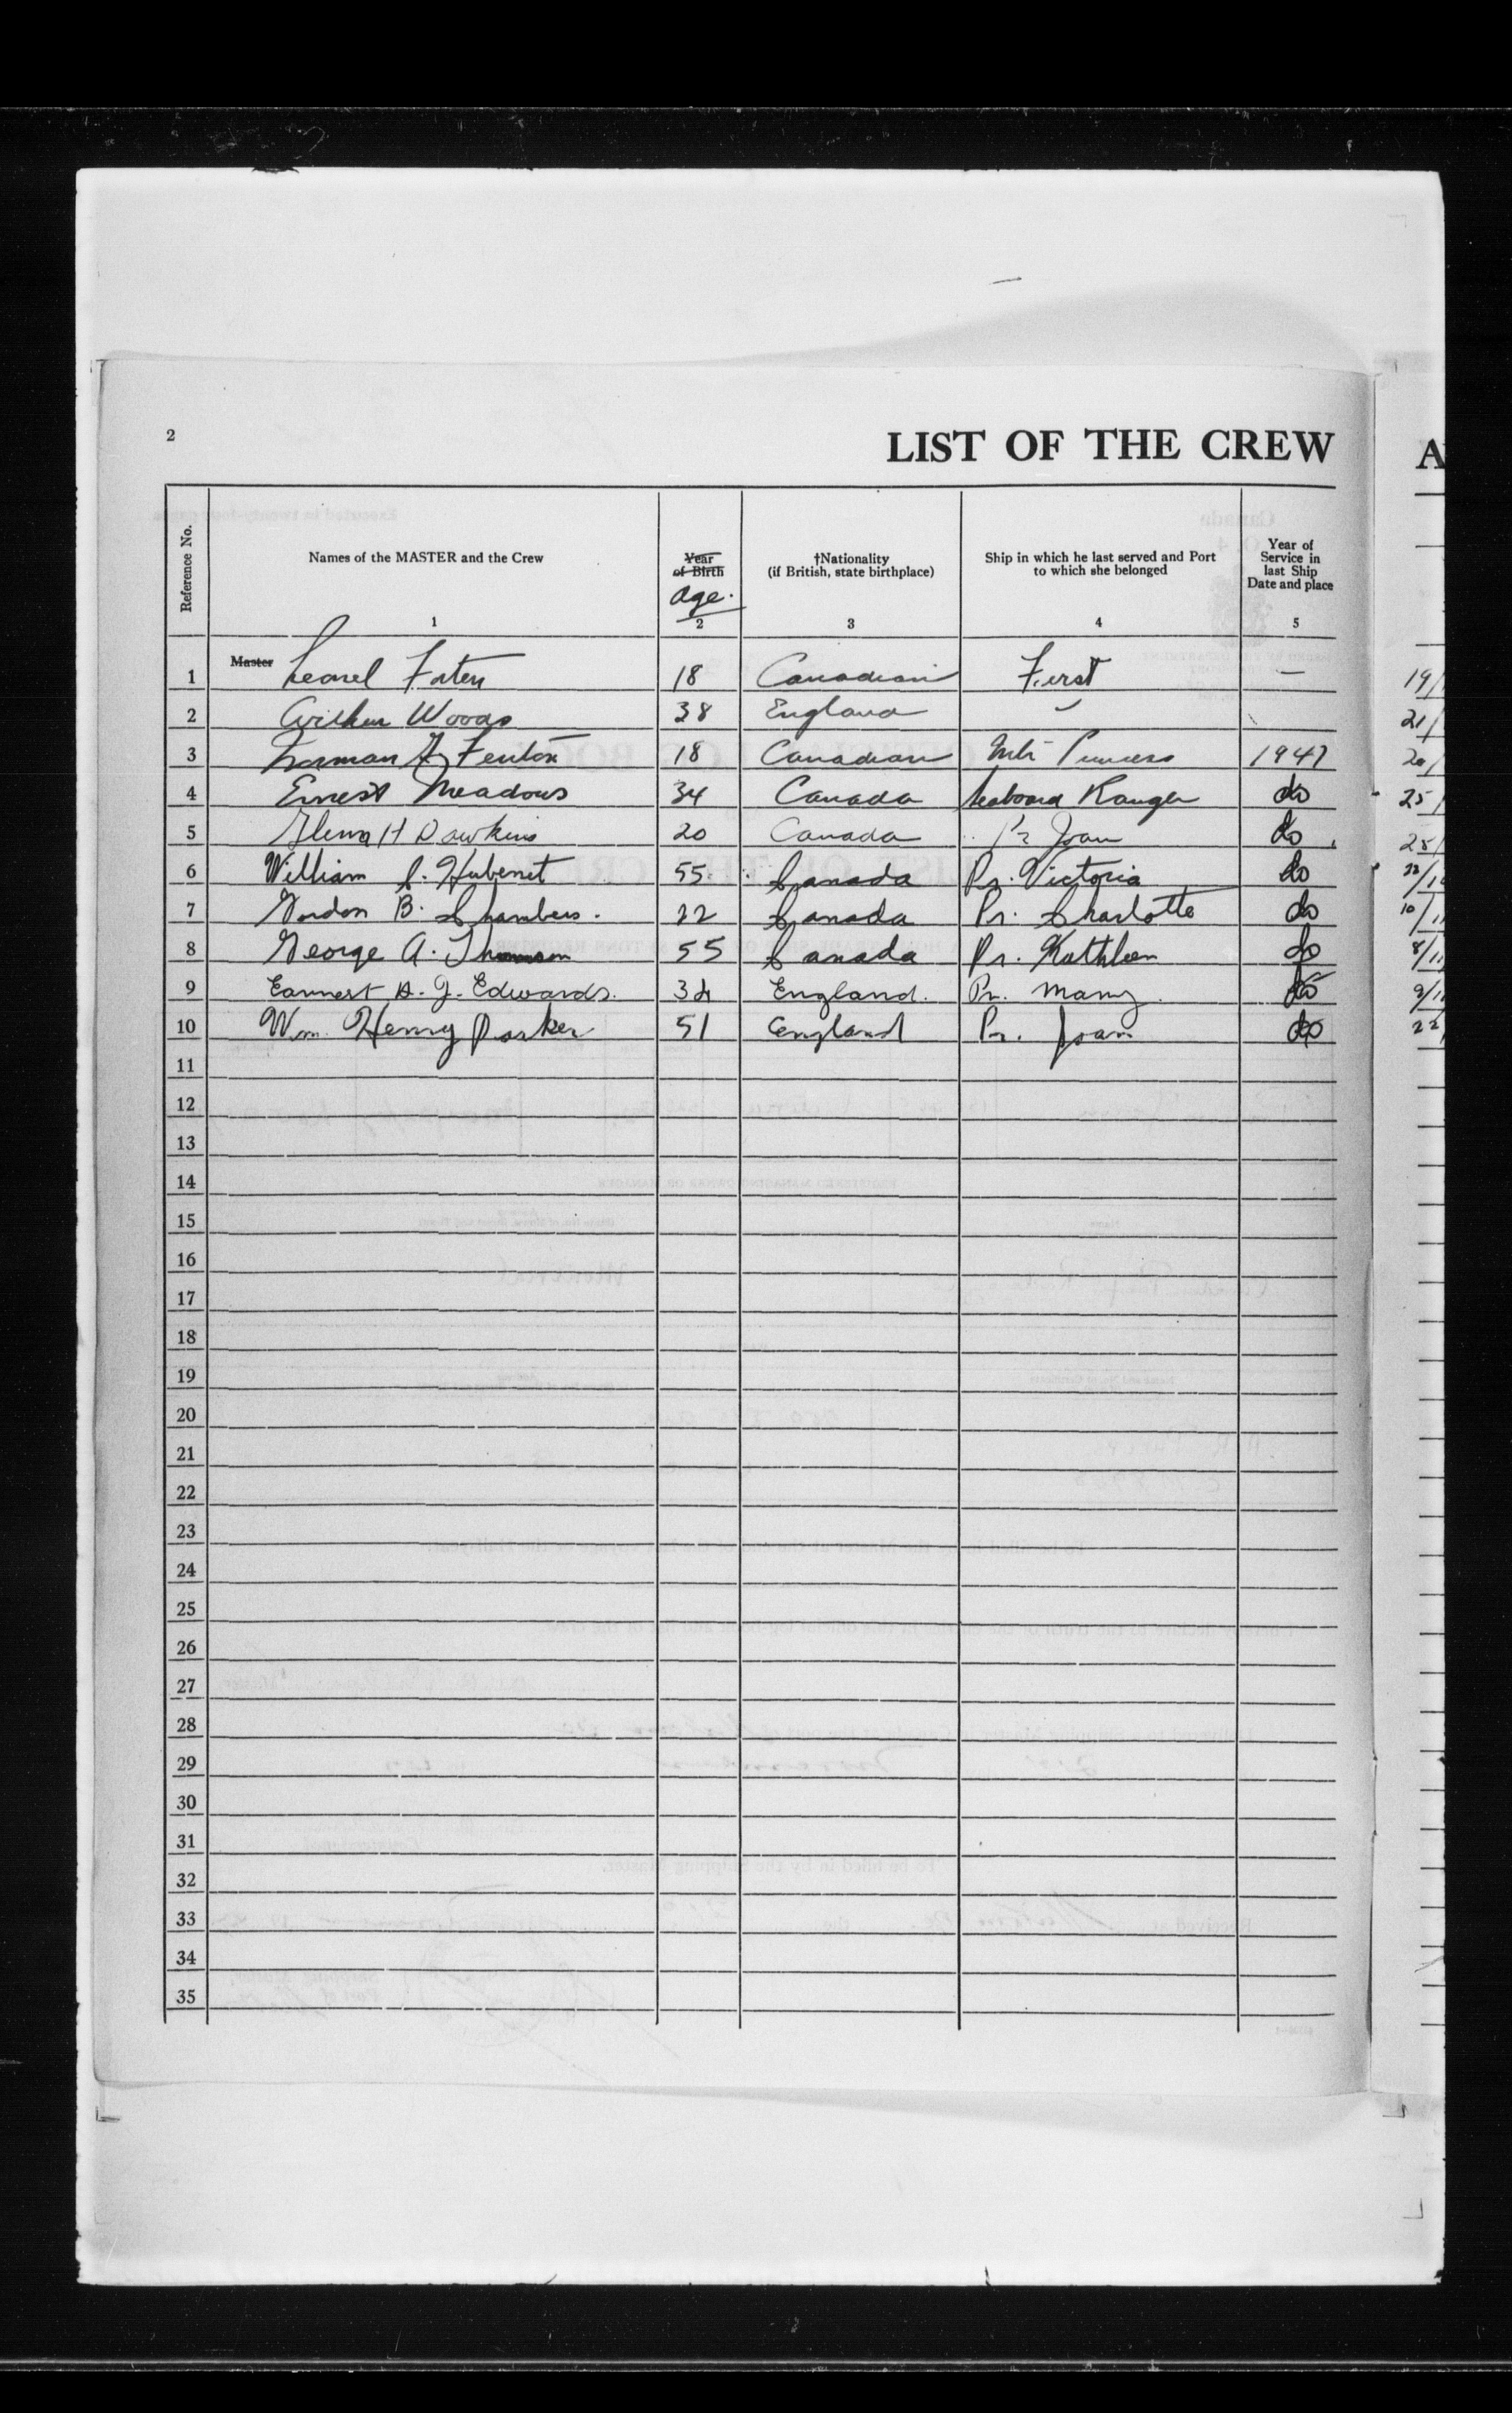 2
LIST OF THE CREW
A
Reference No.
Names of the MASTER and the Crew
Year of Birth
Age.
†Nationality
(if British, state birthplace)
Ship in which he last served and Port
to which she belonged
Year of
Service in
last Ship
Date and place
1 2 3 4 5
1 Master Leonel 18 Canadian First — 19/
2 Arthur Woods 38 England 21/
3 Norman Fenton 18 Canadian Princess 1947
4 Ernest Meadows 34 Canada Seaboard Ranger do 25/
5 Glenn H Dawkins 20 Canada Pr Joan do
6 William C. 55 Canada Pr. Victoria do
7 Gordon B. Chambers. 22 Canada Pr. Charlotte do 10/11
8 George A. Thomson 55 Canada Pr. Kathleen do 8/11
9 Earnest A. J. Edwards. 34 England. Pr. Mary. do 9/11
10 Wm. Henry Parker 51 England Pr. Joan do 22
11
12
13
14
15
16
17
18
19
20
21
22
23
24
25
26
27
28
29
30
31
32
33
34
35